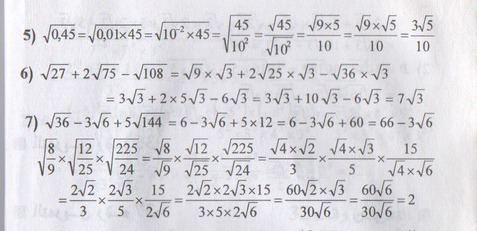 5) √0,45=√0,01×45=√10⁻²×45=√(45/10²)=√45/√10²=√9×5/10=√9×√5/10=3√5/10
6) √27+2√75−√108=√9×√3+2√25×√3−√36×√3
=3√3+2×5√3−6√3=3√3+10√3−6√3=7√3
7) √36−3√6+5√144=6−3√6+5×12=6−3√6+60=66−3√6
√(8/9)×√(12/25)×√(225/24)=√8/√9×√12/√25×√225/√24=√4×√2/3×√4×√3/5×15/√4×√6
=2√2/3×2√3/5×15/2√6=2√2×2√3×15/3×5×2√6=60√2×√3/30√6=60√6/30√6=2